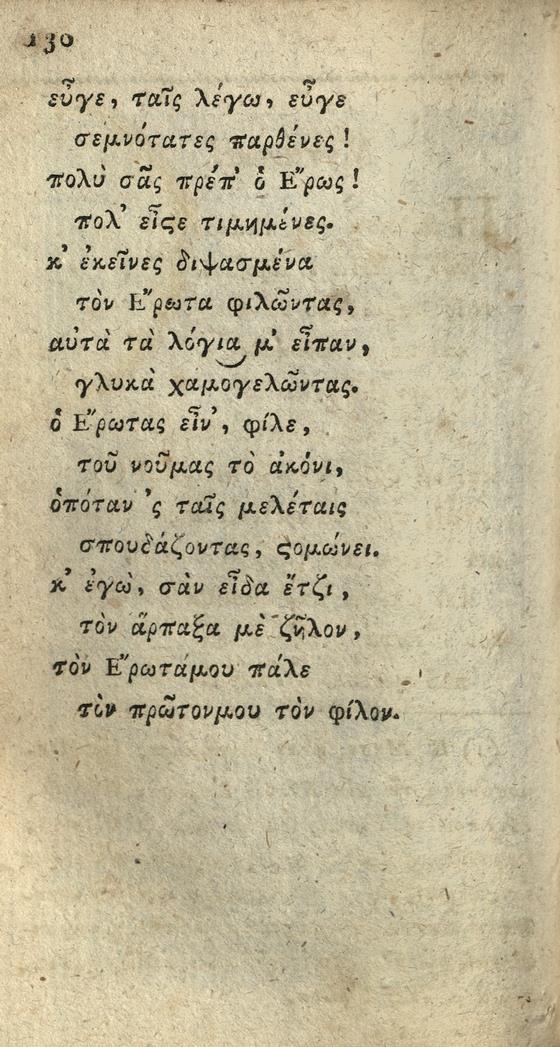 130
εὖγε, ταῖς λέγω, εὖγε
σεμνότατες παρθένες!
πολὺ σᾶς πρέπ' ὁ Ἔρως!
πολ' εἶϛε τιμημένες.
κ' ἐκεῖνες διψασμένα
τὸν Ἔρωτα φιλῶντας,
αὐτὰ τὰ λόγια μ' εἶπαν,
γλυκὰ χαμογελῶντας.
ὁ Ἔρωτας εἶν', φίλε,
τοῦ νοῦμας τὸ ἀκόνι,
ὁπόταν 'ς ταῖς μελέταις
σπουδάζοντας, ϛομώνει.
κ' ἐγὼ, σὰν εἶδα ἔτζι,
τὸν ἅρπαξα μὲ ζῆλον,
τὸν Ἔρωτάμου πάλε
τὸν πρῶτονμου τὸν φίλον.